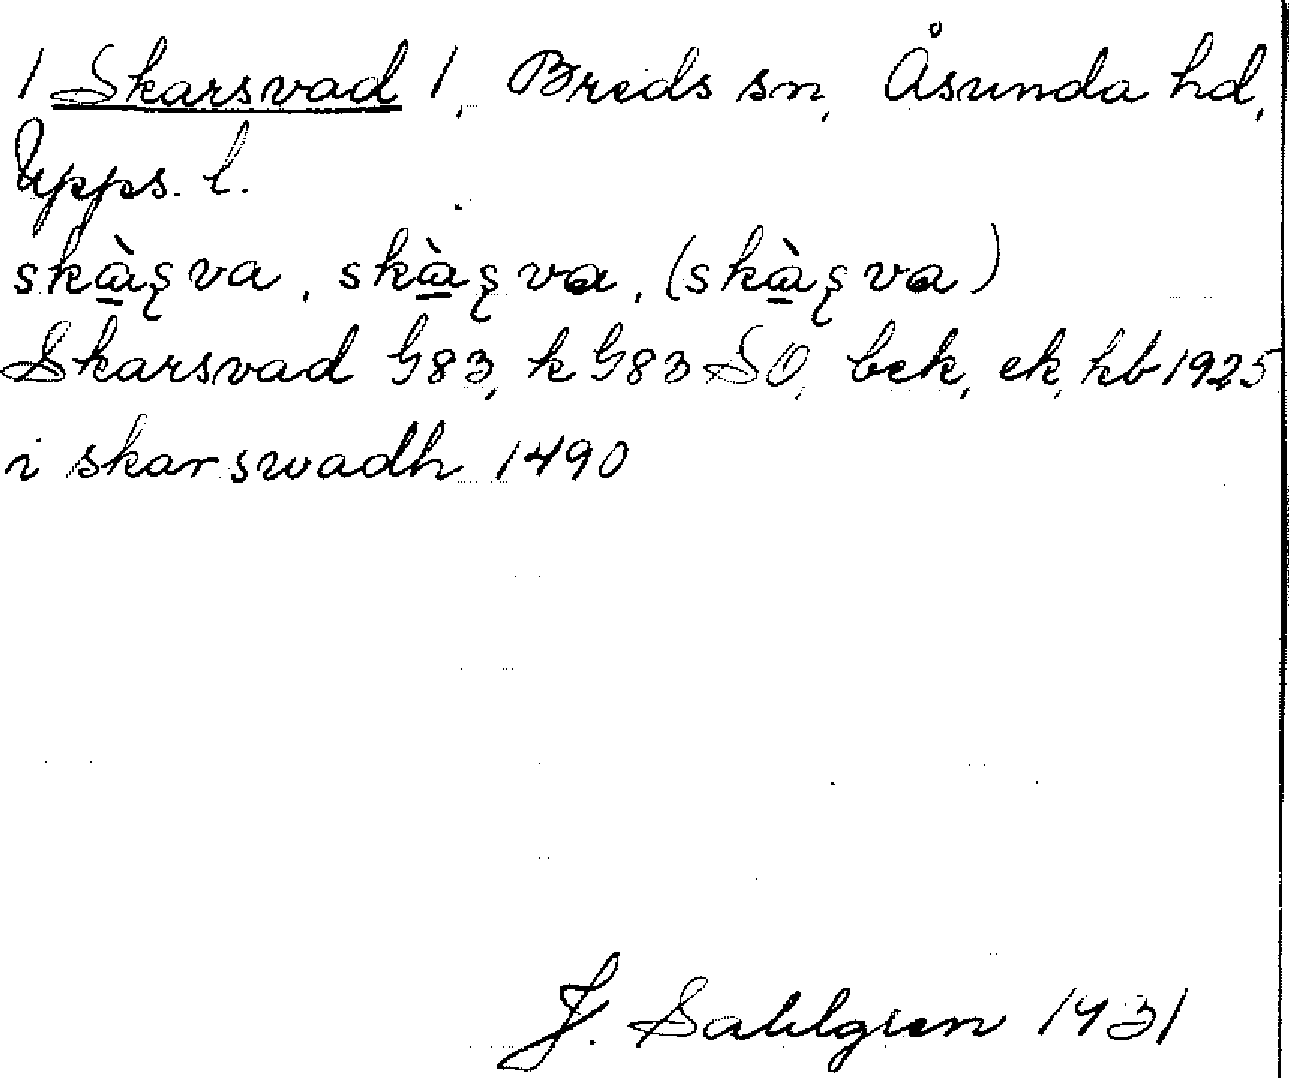 1 Skarsvad 1, Breds sn, Åsunda hd,
Upps. l.
skàʂva, skàʂva, (skàʂva)
Skarsvad G83, k G83 SO, bek, ek, hb 1925
i skarswadh 1490
J. Sahlgren 1931